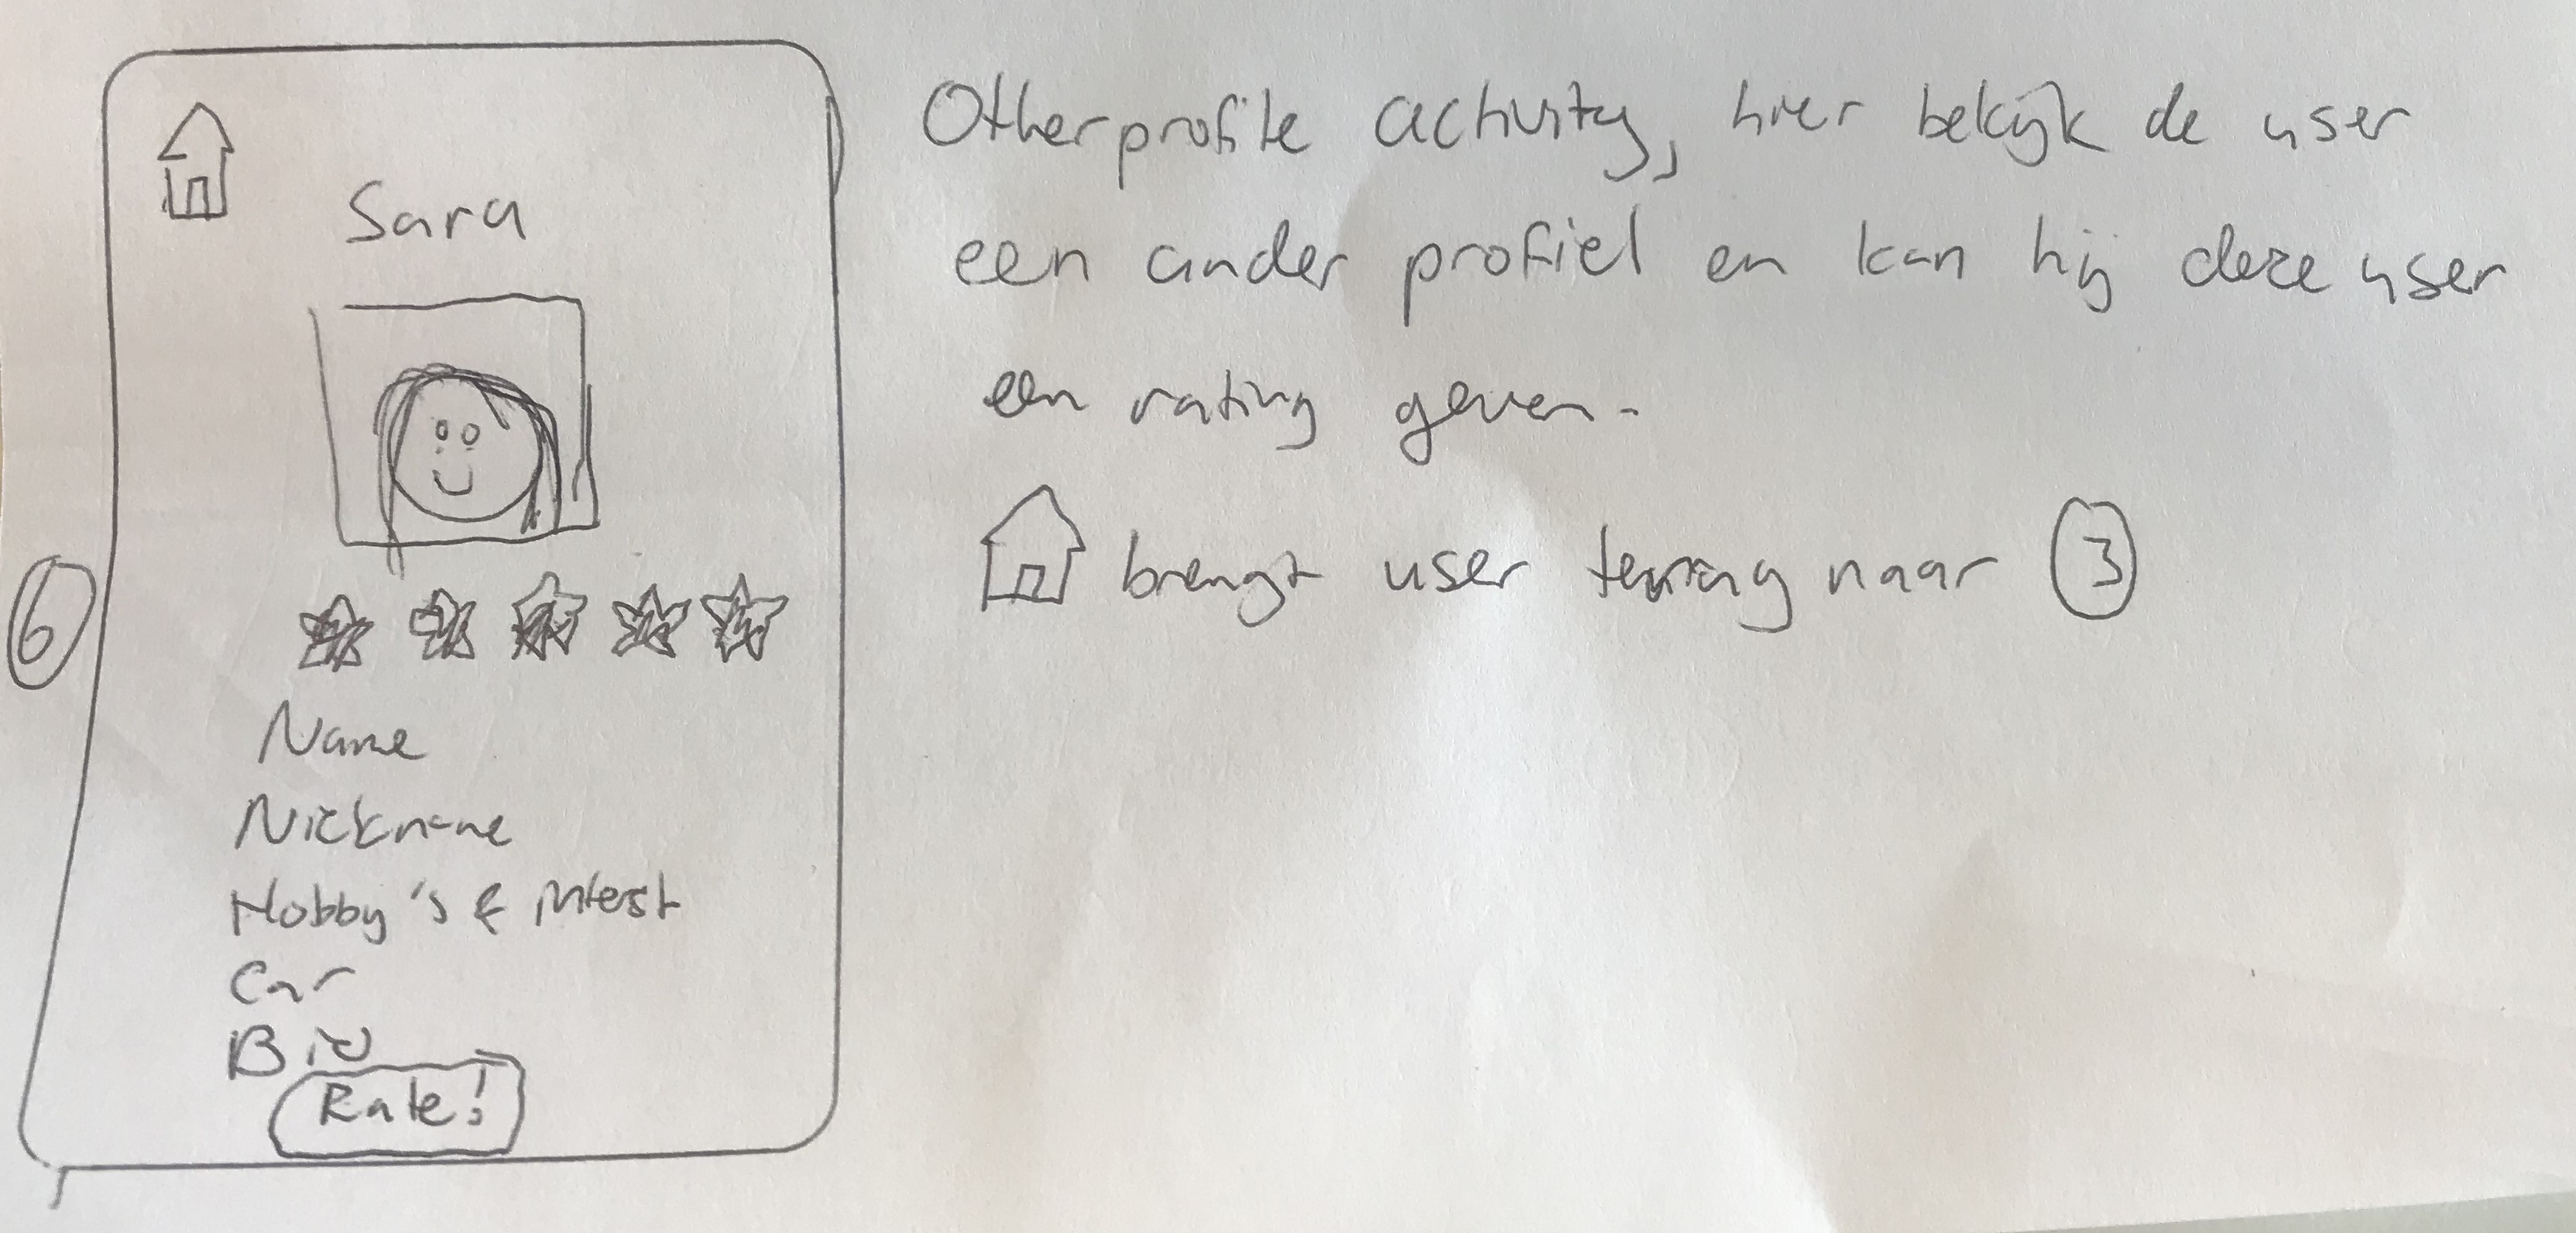 6
Sara
Name
Nickname
Hobby's & intest
Car
Bio
Rate!
Otherprofile activity, hier bekijk de user
een ander profiel en kan hij deze user
een rating geven.
brengt user terug naar 3